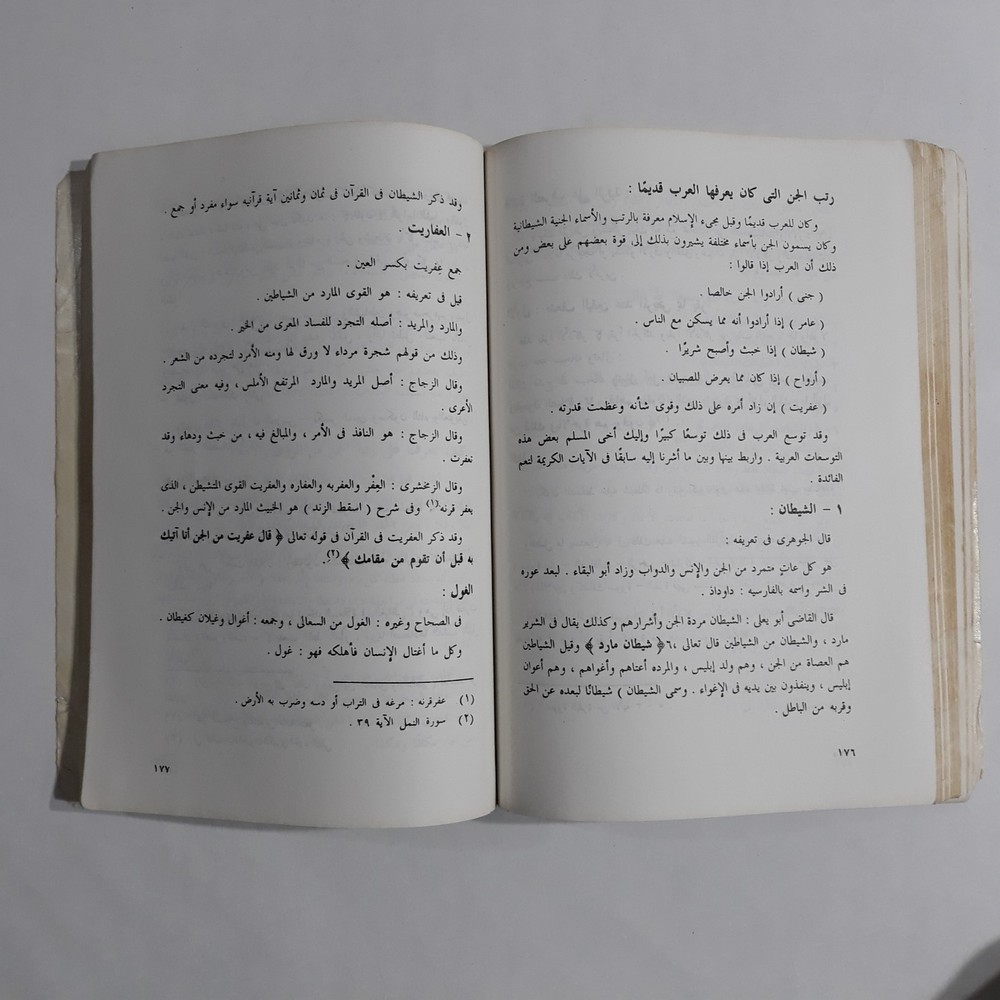 رتب الجن التى كان يعرفها العرب قديمًا :
وكان للعرب قديمًا وقبل مجىء الإسلام معرفة بالرتب والأسماء الجنية الشيطانية
وكان يسمون الجن بأسماء مختلفة يشيرون بذلك إلى قوة بعضهم على بعض ومن
ذلك أن العرب إذا قالوا :
( جنى ) أرادوا الجن خالصا .
( عامر ) إذا أرادوا أنه مما يسكن مع الناس .
( شيطان ) إذا خبث وأصبح شريرًا .
( أرواح ) إذا كان مما يعرض للصبيان .
( عفريت ) إن زاد أمره على ذلك وقوى شأنه وعظمت قدرته .
وقد توسع العرب فى ذلك توسعًا كبيرًا وإليك أخى المسلم بعض هذه
التوسعات العربية . واربط بينها وبين ما أشرنا إليه سابقًا فى الآيات الكريمة لتعم
الفائدة .
١ - الشيطان :
قال الجوهرى فى تعريفه :
هو كل عاتٍ متمرد من الجن والإنس والدواب وزاد أبو البقاء . لبعد عوره
فى الشر واسمه بالفارسيه : داوداذ .
قال القاضى أبو يعلى : الشيطان مردة الجن وأشرارهم وكذلك يقال فى الشرير
مارد ، والشيطان من الشياطين قال تعالى ،٦﴿ شيطان مارد ﴾ وقيل الشياطين
هم العصاة من الجن ، وهم ولد إبليس ، والمرده أعتاهم وأغواهم ، وهم أعوان
إبليس ، وينفذون بين يديه فى الإغواء . وسمى الشيطان ) شيطانًا لبعده عن الحق
وقربه من الباطل .
١٧٦
وقد ذكر الشيطان فى القرآن فى ثمان وثمانين آية قرآنيه سواء مفرد أو جمع .
٢ - العفاريت .
جمع عِفريت بكسر العين .
قيل فى تعريفه : هو القوى المارد من الشياطين .
والمارد والمريد : أصله التجرد للفساد المعرى من الخير .
وذلك من قولهم شجرة مرداء لا ورق لها ومنه الأمرد لتجرده من الشعر .
وقال الزجاج : أصل المريد والمارد المرتفع الأملس ، وفيه معنى التجرد
الأعرى .
وقال الزجاج : هو النافذ فى الأمر ، والمبالغ فيه ، من خبث ودهاء وقد
تعفرت .
وقال الزمخشرى : العِفْر والعفريه والعفاره والعفريت القوى المتشيطن ، الذى
يعفر قرنه(١) وفى شرح ( اسقط الزند ) هو الخبيث المارد من الإنس والجن .
وقد ذكر العفريت فى القرآن فى قوله تعالى ﴿ قال عفريت من الجن أنا آتيك
به قبل أن تقوم من مقامك ﴾(٢).
الغول :
فى الصحاح وغيره : الغول من السعالى ، وجمعه : أغوال وغيلان كغيطان .
وكل ما أغتال الإنسان فأهلكه فهو : غول .
(١) عفرقرنه : مرغه فى التراب أو دسه وضرب به الأرض .
(٢) سورة النمل الآية ٣٩ .
١٧٧